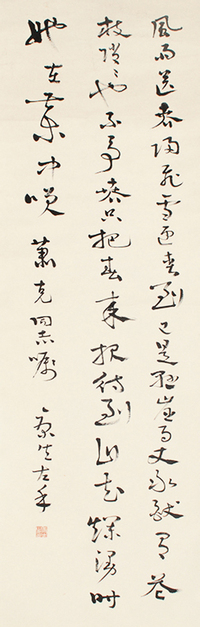 風雨送春歸飛雪迎春到已是懸崖百丈冰猶有花
枝俏〻也不爭春只把春來報待到山花爛漫時
她在叢中咲 蕭克同志囑 左手